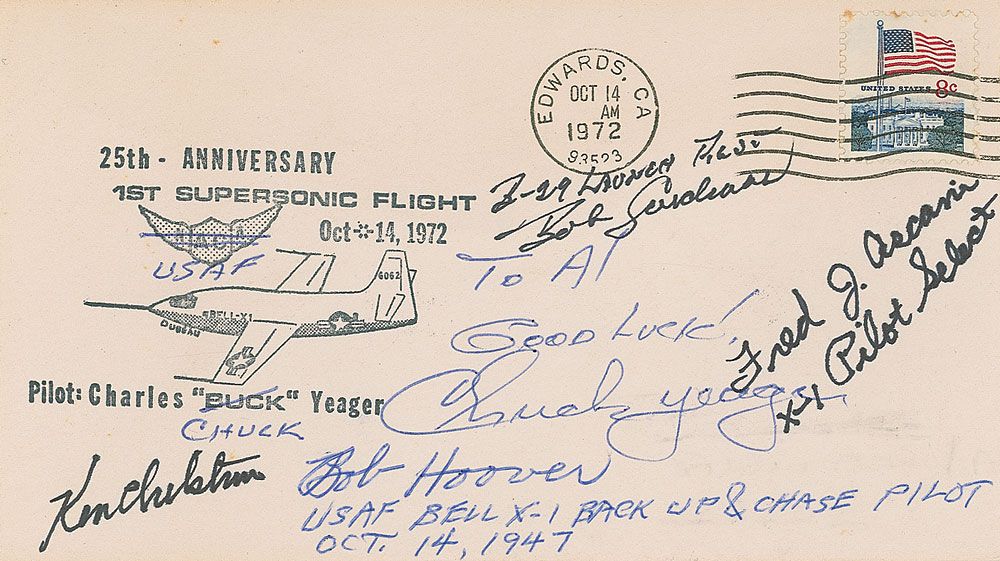 EDWARDS, CA
OCT 14
AM
1972
93523
UNITED STATES 8c
25th - ANNIVERSARY
1ST SUPERSONIC FLIGHT
Oct 14, 1972
USAF
6062
BELL-X1
DUBEAU
B-29 LAUNCH PILOT
Bob Cardenas
To Al
GOOD LUCK!
Chuck Yeager
Fred J. Ascani
X-1 Pilot Select
Pilot: Charles "BUCK" Yeager
CHUCK
Ken Chilstrom
Bob Hoover
USAF BELL X-1 BACK UP & CHASE PILOT
OCT. 14, 1947